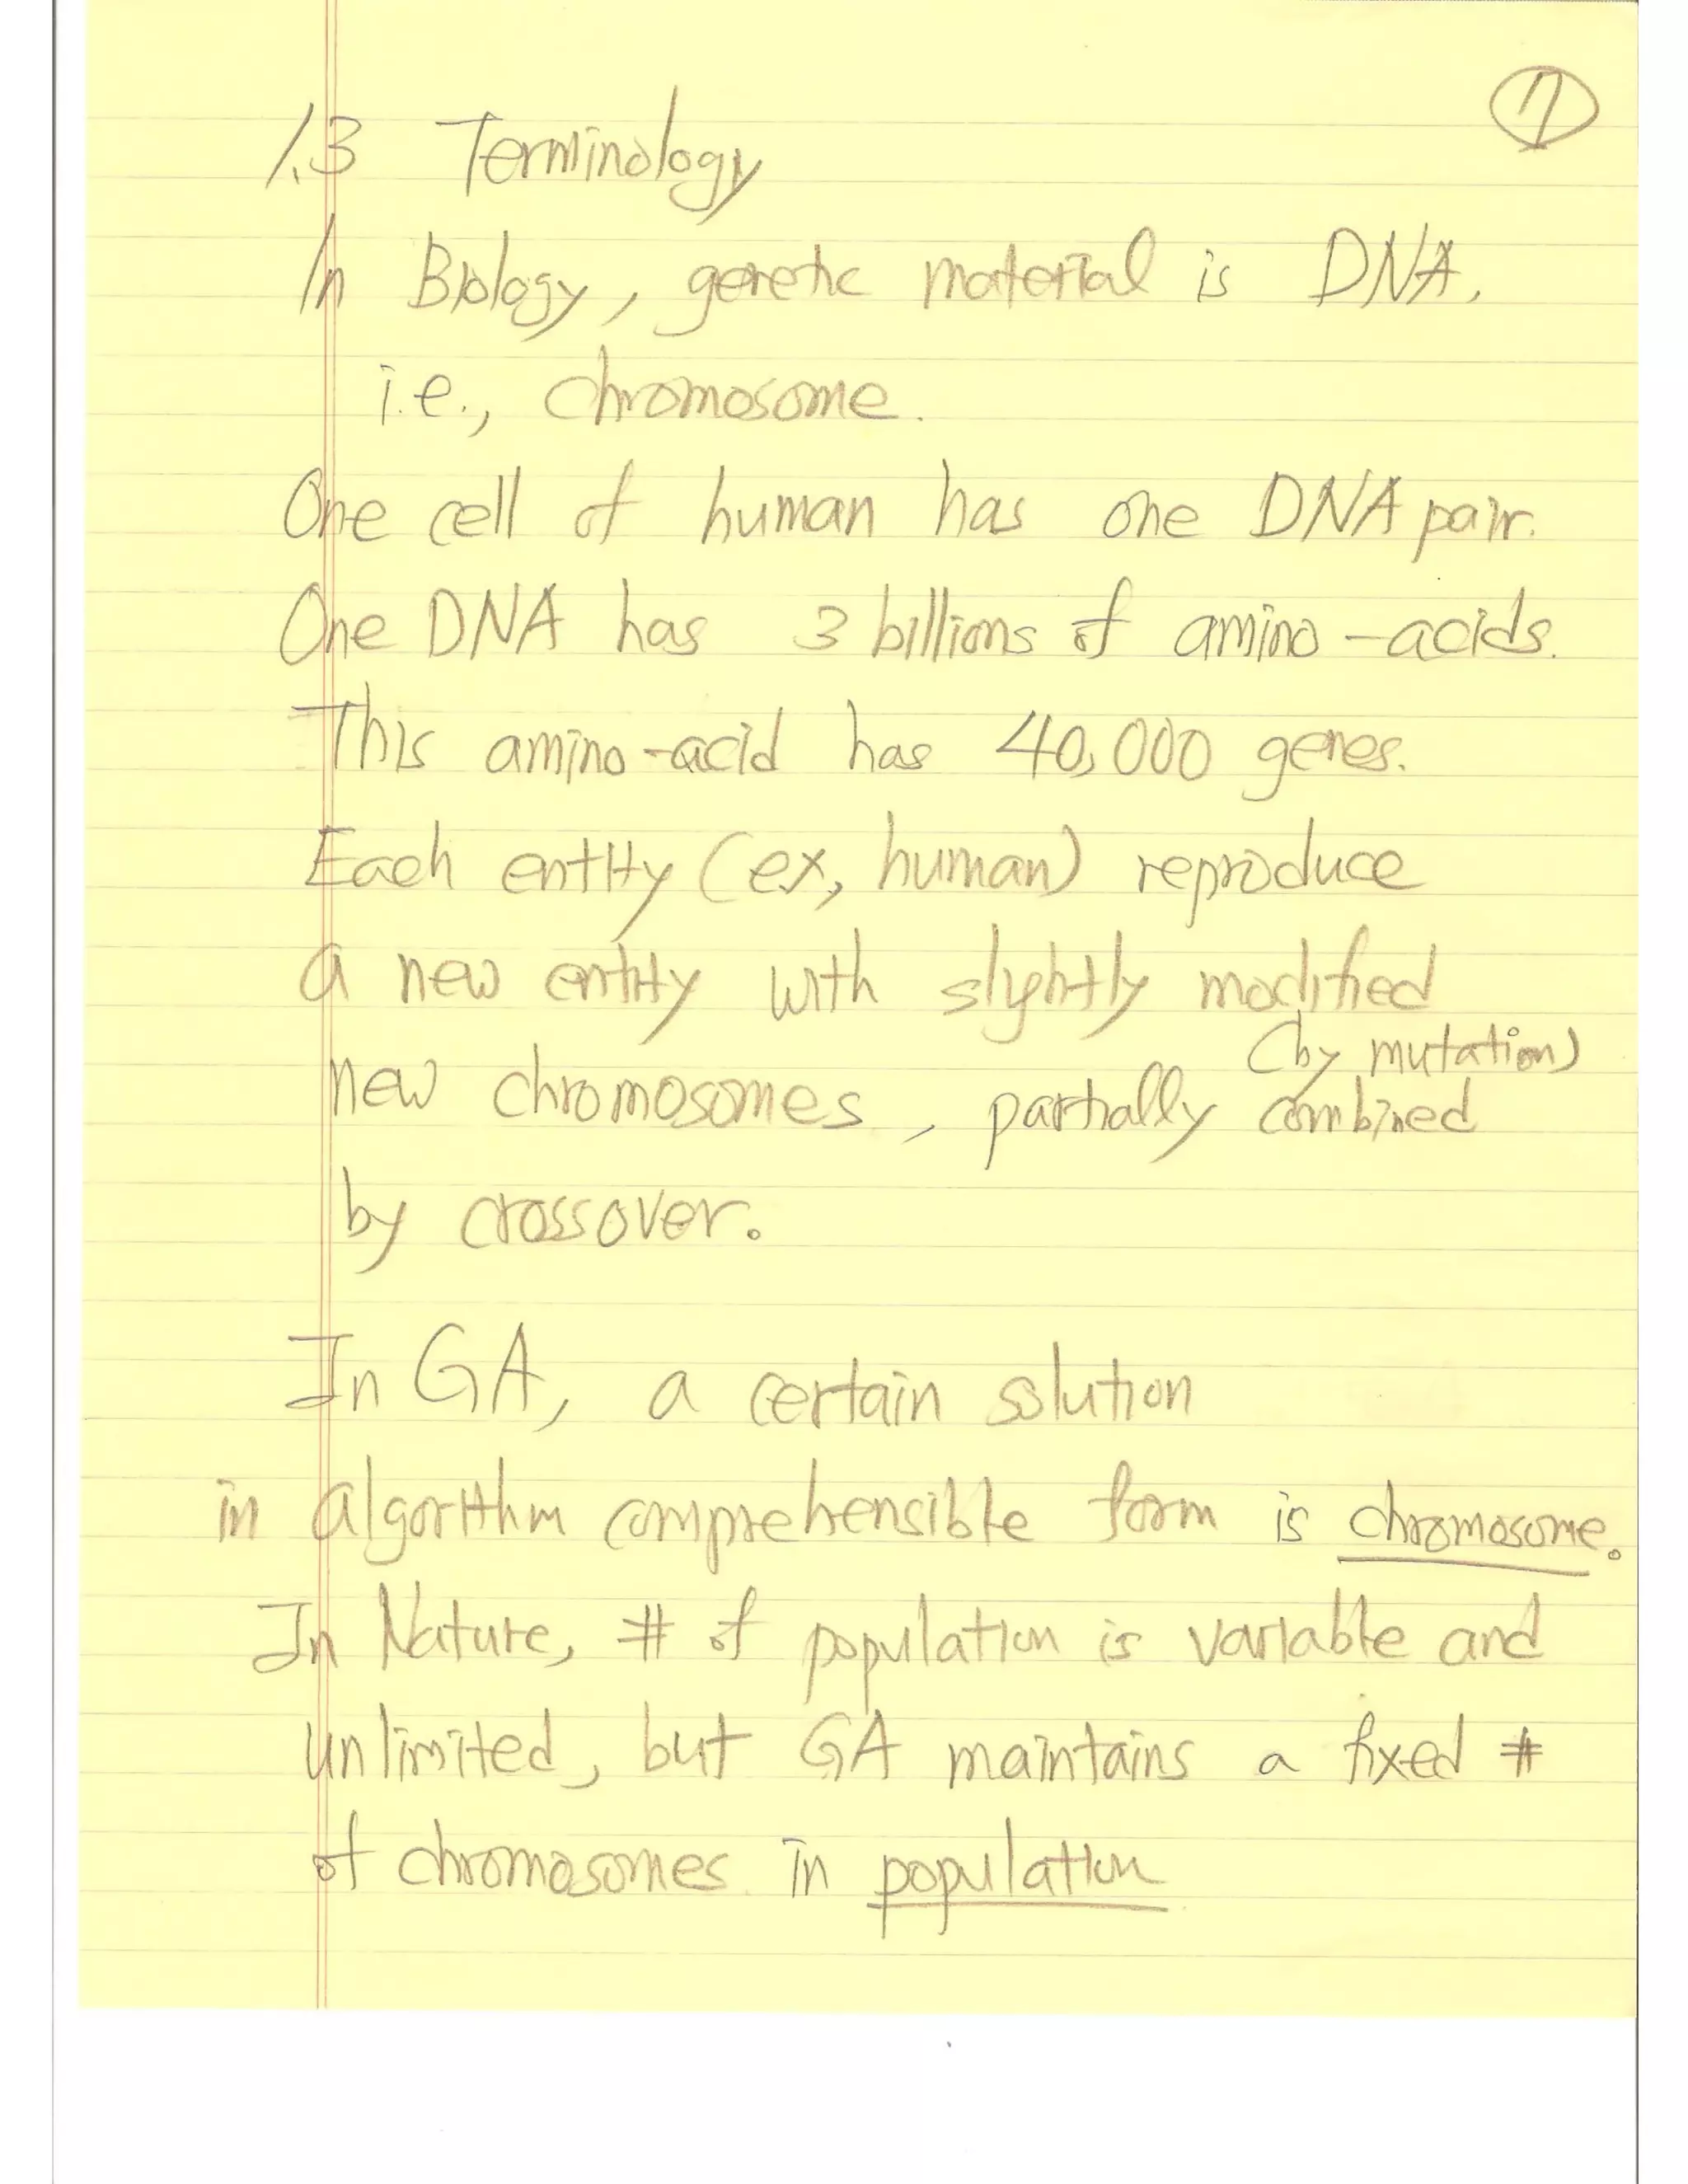 7
1.3 Terminology
In Biology, genetic material is DNA.
i.e., chromosome.
One cell of human has one DNA pair.
One DNA has 3 billions of amino-acids.
This amino-acid has 40,000 genes.
Each entity (ex, human) reproduce
a new entity with slightly modified
(by mutation)
new chromosomes, partially combined
by crossover.
In GA, a certain solution
in algorithm comprehensible form is chromosome.
In Nature, # of population is variable and
unlimited, but GA maintains a fixed #
of chromosomes in population